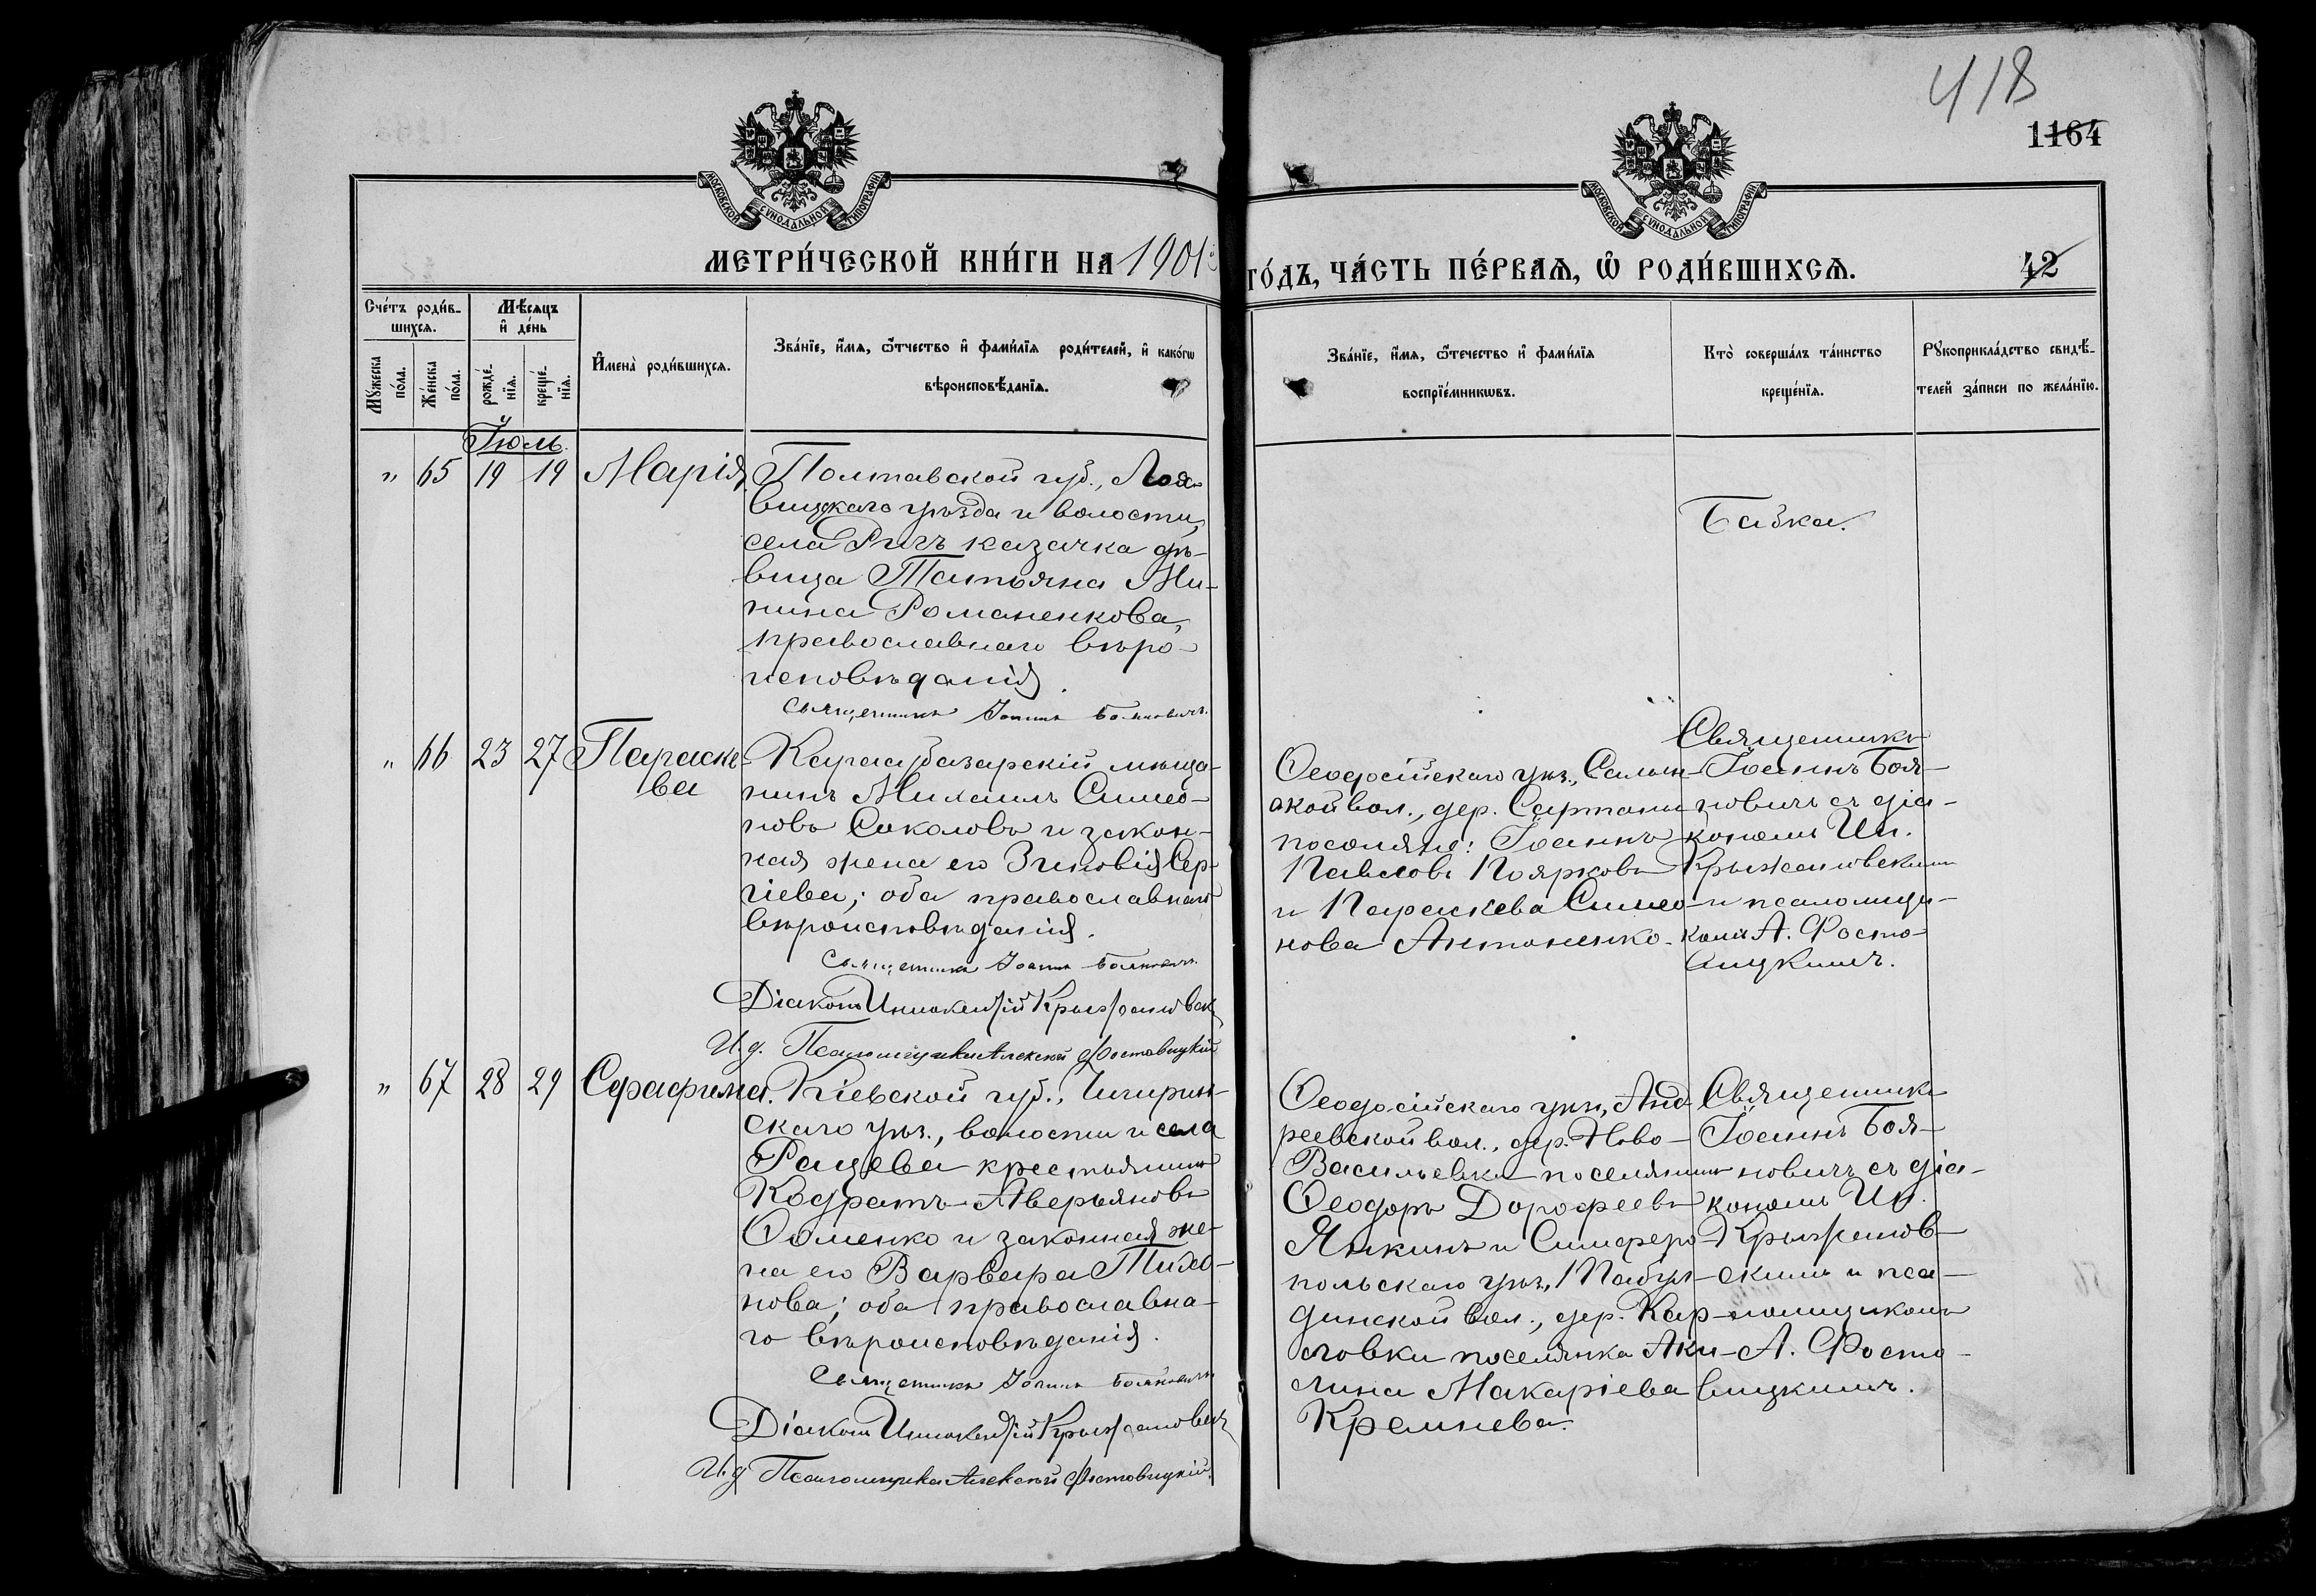 418
1164
МОСКОВСКОЙ СѴНОДАЛЬНОЙ ТИПОГРАФІИ
МОСКОВСКОЙ СѴНОДАЛЬНОЙ ТИПОГРАФІИ
МЕТРИ́ЧЕСКОЙ КНИ́ГИ НА 1901
ГО́ДЪ, ЧА́СТЬ ПЕ́РВАѦ, Ѽ РОДИ́ВШИХСѦ.
42
Сче́тъ роди́в-
шихсѧ.
Мꙋ́жеска по́ла.
Же́нска по́ла.
Мѣ́сѧцъ
и҆ де́нь
рожде́-
нїѧ.
креще́-
нїѧ.
И҆мена̀ роди́вшихсѧ.
Зва́нїе, и҆́мѧ, ѻ҆́тчество и҆ фами́лїѧ роди́телей, и҆ како́гѡ
вѣроисповѣ́данїѧ.
Зва́нїе, и҆́мѧ, ѻ҆́течество и҆ фами́лїѧ
воспрїе́мникѡвъ.
Кто̀ соверша́лъ та́инство
креще́нїѧ.
Рꙋкоприкла́дство свидѣ́-
телей за́писи по жела́нїю.
Іюль.
" 65 19 19 Марія
Полтавской губ., Лох-
вицкаго уѣзда и волости,
села Ригъ казачка дѣ-
вица Татьяна Ми-
нина Романенкова,
православнаго вѣро-
исповѣданія.
Священникъ Іоаннъ Бояновичъ.
Бабка.
" 66 23 27 Параске-
ва
Карасубазарскій мѣща-
нинъ Михаилъ Симео-
новъ Соколовъ и закон-
ная жена его Зиновія Сер-
гіева; оба православнаго
вѣроисповѣданія.
Священникъ Іоаннъ Бояновичъ.
Діаконъ Иннокентій Крыжановск
И. д. Псаломщика Алексѣй Фостовицкій
Ѳеодосійскаго уѣз., Салын-
ской вол., дер. Сартаны
поселяне: Іоаннъ
Павловъ Поярковъ
и Параскева Симео-
нова Антоненко.
Священникъ
Іоаннъ Боя-
новичъ съ діа-
кономъ Ин.
Крыжановскимъ
и псаломщи-
комъ А. Фосто-
вицкимъ.
" 67 28 29 Серафима.
Кіевской губ., Чигирин-
скаго уѣз., волости и села
Рацева крестьянинъ
Кодратъ Аверьяновъ
Ѳоменко и законная же-
на его Варвара Тихо-
нова; оба православна-
го вѣроисповѣданія.
Священникъ Іоаннъ Бояновичъ
Діаконъ Иннокентій Крыжановск
И. д. Псаломщика Алексѣй Фостовицкій.
Ѳеодосійскаго уѣз., Анд-
реевской вол., дер. Ново-
Васильевки поселянинъ
Ѳеодоръ Дорофеевъ
Янкинъ и Симферо-
польскаго уѣз., Табул-
динской вол., дер. Кар-
ловки поселянка Аки-
лина Макаріева
Кремнева.
Священникъ
Іоаннъ Боя-
новичъ съ діа-
кономъ Ин.
Крыжанов-
скимъ и пса-
ломщикомъ
А. Фосто-
вицкимъ.